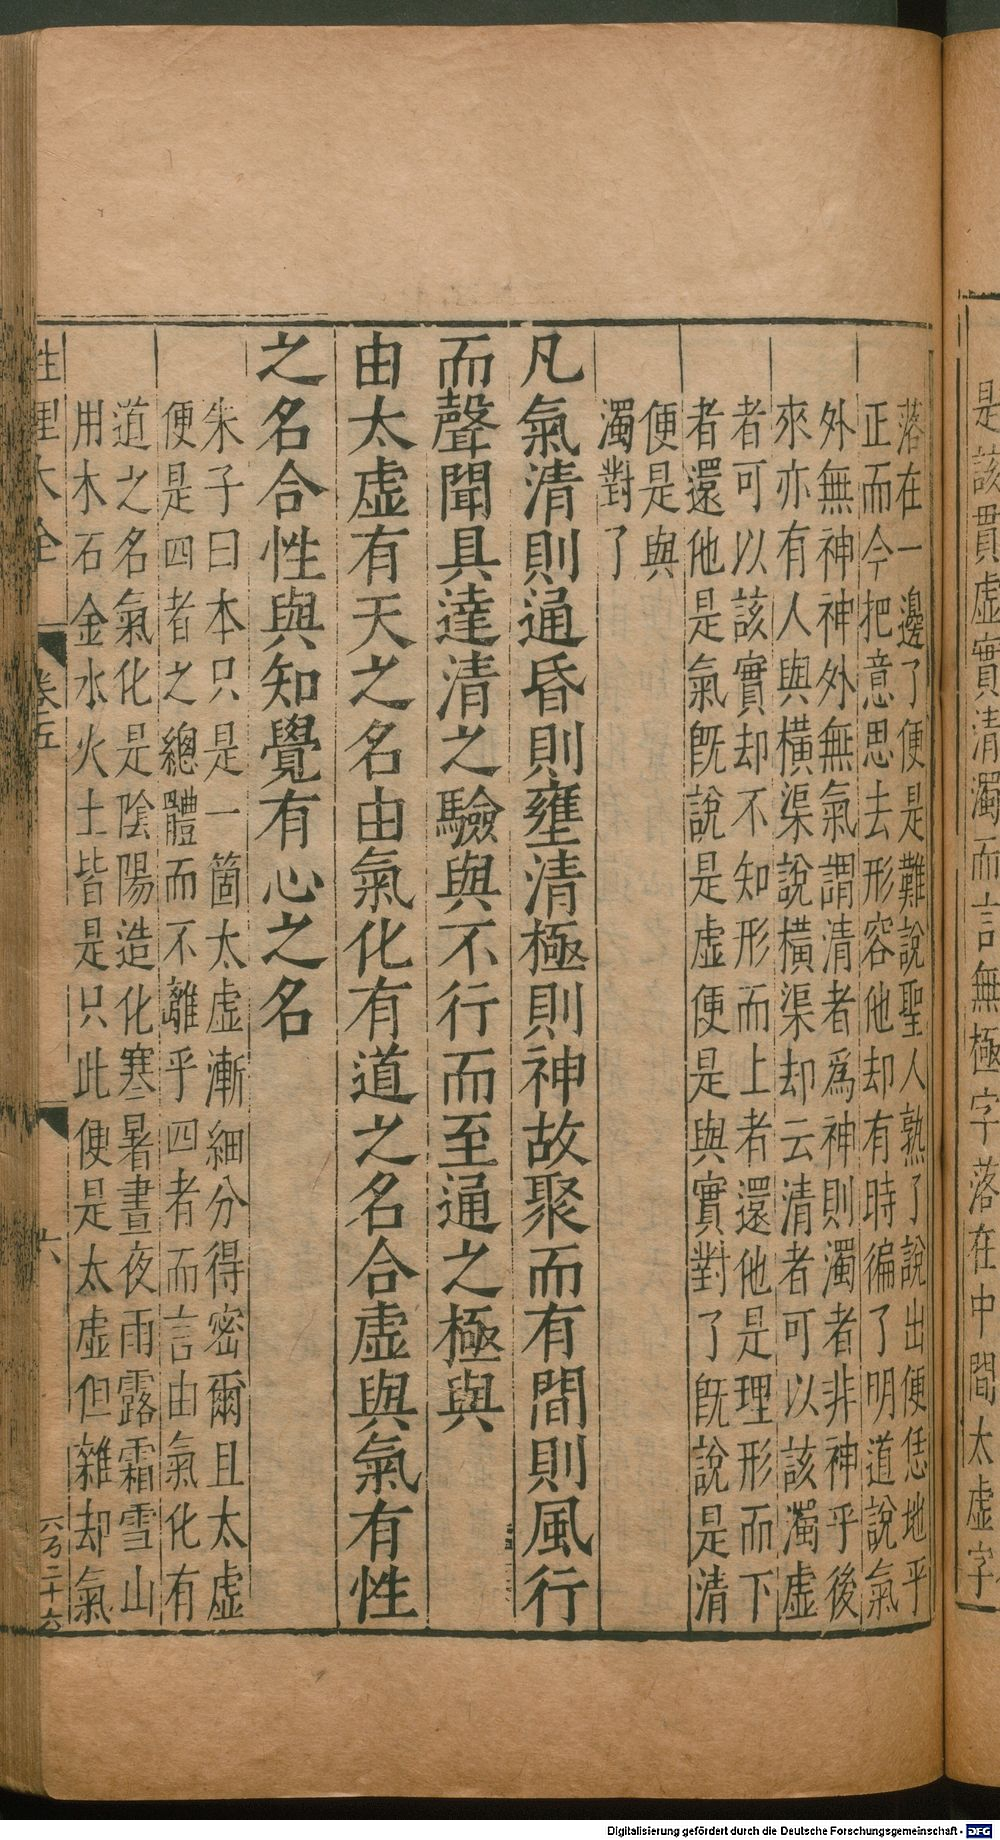 是該貫虛實清濁而言無極字落在中間太虛字
落在一邊了便是難說聖人熟了說出便恁地平
正而今把意思去形容他却有時徧了明道說氣
外無神神外無氣謂清者爲神則濁者非神乎後
來亦有人與橫渠說橫渠却云清者可以該濁虛
者可以該實却不知形而上者還他是理形而下
者還他是氣旣說是虛便是與實對了旣說是清
便是與
濁對了
凡氣清則通昏則壅清極則神故聚而有間則風行
而聲聞具達清之驗與不行而至通之極與
由太虛有天之名由氣化有道之名合虛與氣有性
之名合性與知覺有心之名
朱子曰本只是一箇太虛漸細分得密爾且太虛
便是四者之總體而不離乎四者而言由氣化有
道之名氣化是陰陽造化寒暑晝夜雨露霜雪山
用木石金水火土皆是只此便是太虛但雜却氣
性理大全
卷五
六
六万二十六
Digitalisierung gefördert durch die Deutsche Forschungsgemeinschaft - DFG